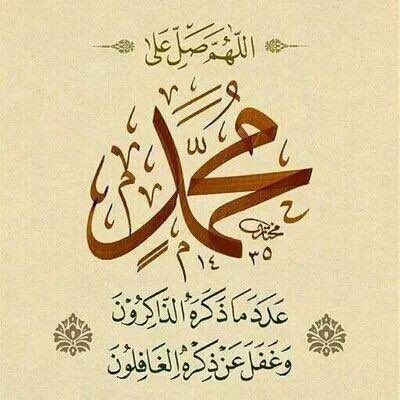 اَللّٰهُمَّ صَلِّ عَلٰى
مُحَمَّدٍ
١٤٣٥
عَدَدَ مَا ذَكَرَهُ الذَّاكِرُوْنَ
وَغَفَلَ عَنْ ذِكْرِهِ الْغَافِلُوْنَ